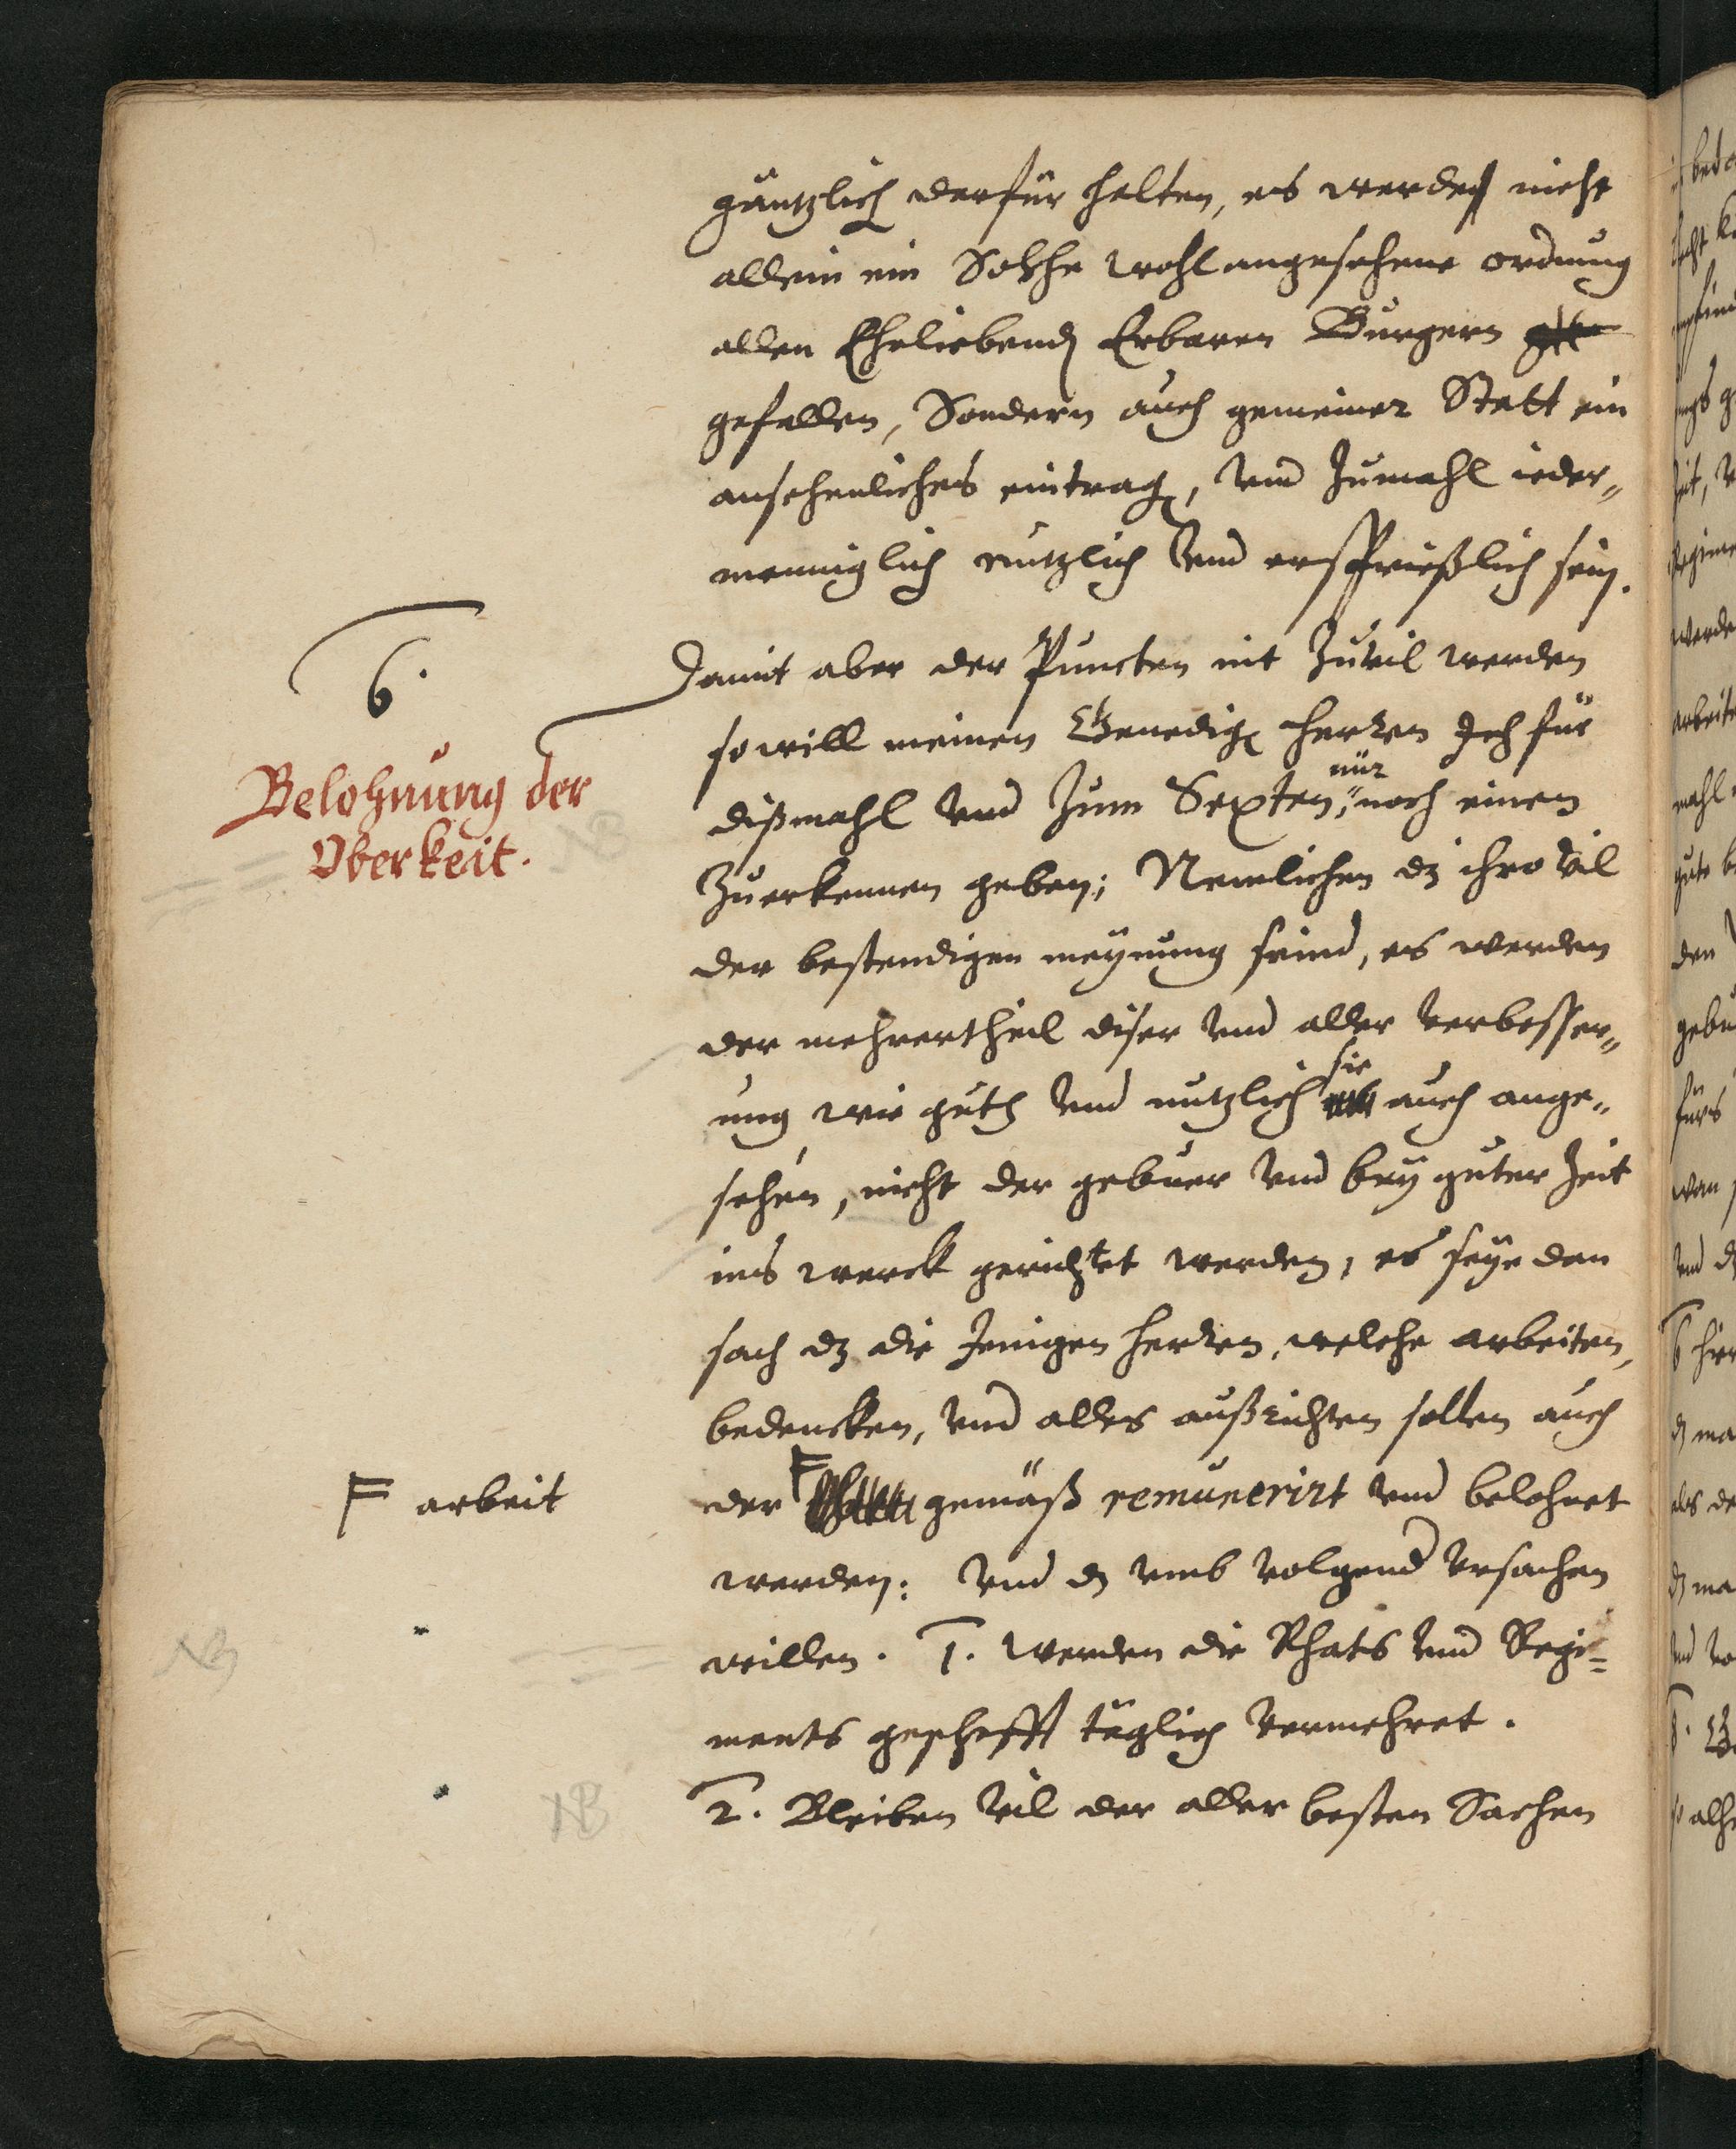 gäntzlich derfür halten, es werde nicht
allein ein Solche wohlangesehene ordnung
allen Ehrliebend Erbaren Burgern
gefallen, Sondern auch gemeiner Statt ein
ansehenliches eintrag, vnd zumahl ieder„
menniglich nutzlich vnd ersprießlich sein.
6.
Damit aber der Puncten nit zuvil werden
so will meinen Genedig herren Ich für
Belohnung der
Oberkeit.
dißmahl vnd zum Sexten, nür noch einen
zuerkennen geben; Nemlichen dz ihro vil
der bestendigen meÿnung seind, es werden
der mehrertheil diser vnd aller verbesser„
ung wie guth vnd nutzlich sie auch ange„
sehen, nicht der gebuer vnd beÿ guter Zeit
ins werck gerichtet werden, es seÿe dan
sach dz die Jenigen herren, welche arbeiten,
bedencken, vnd alles außrichten sollen auch
F arbeit
der F gemäß remunerirt vnd belohnet
werden: Vnd dz vmb volgend vrsachen
willen. 1. werden die Rhats vnd Regi=
NB
ments geschefft täglich vermehret.
NB
2. Bleiben vil der aller besten Sachen